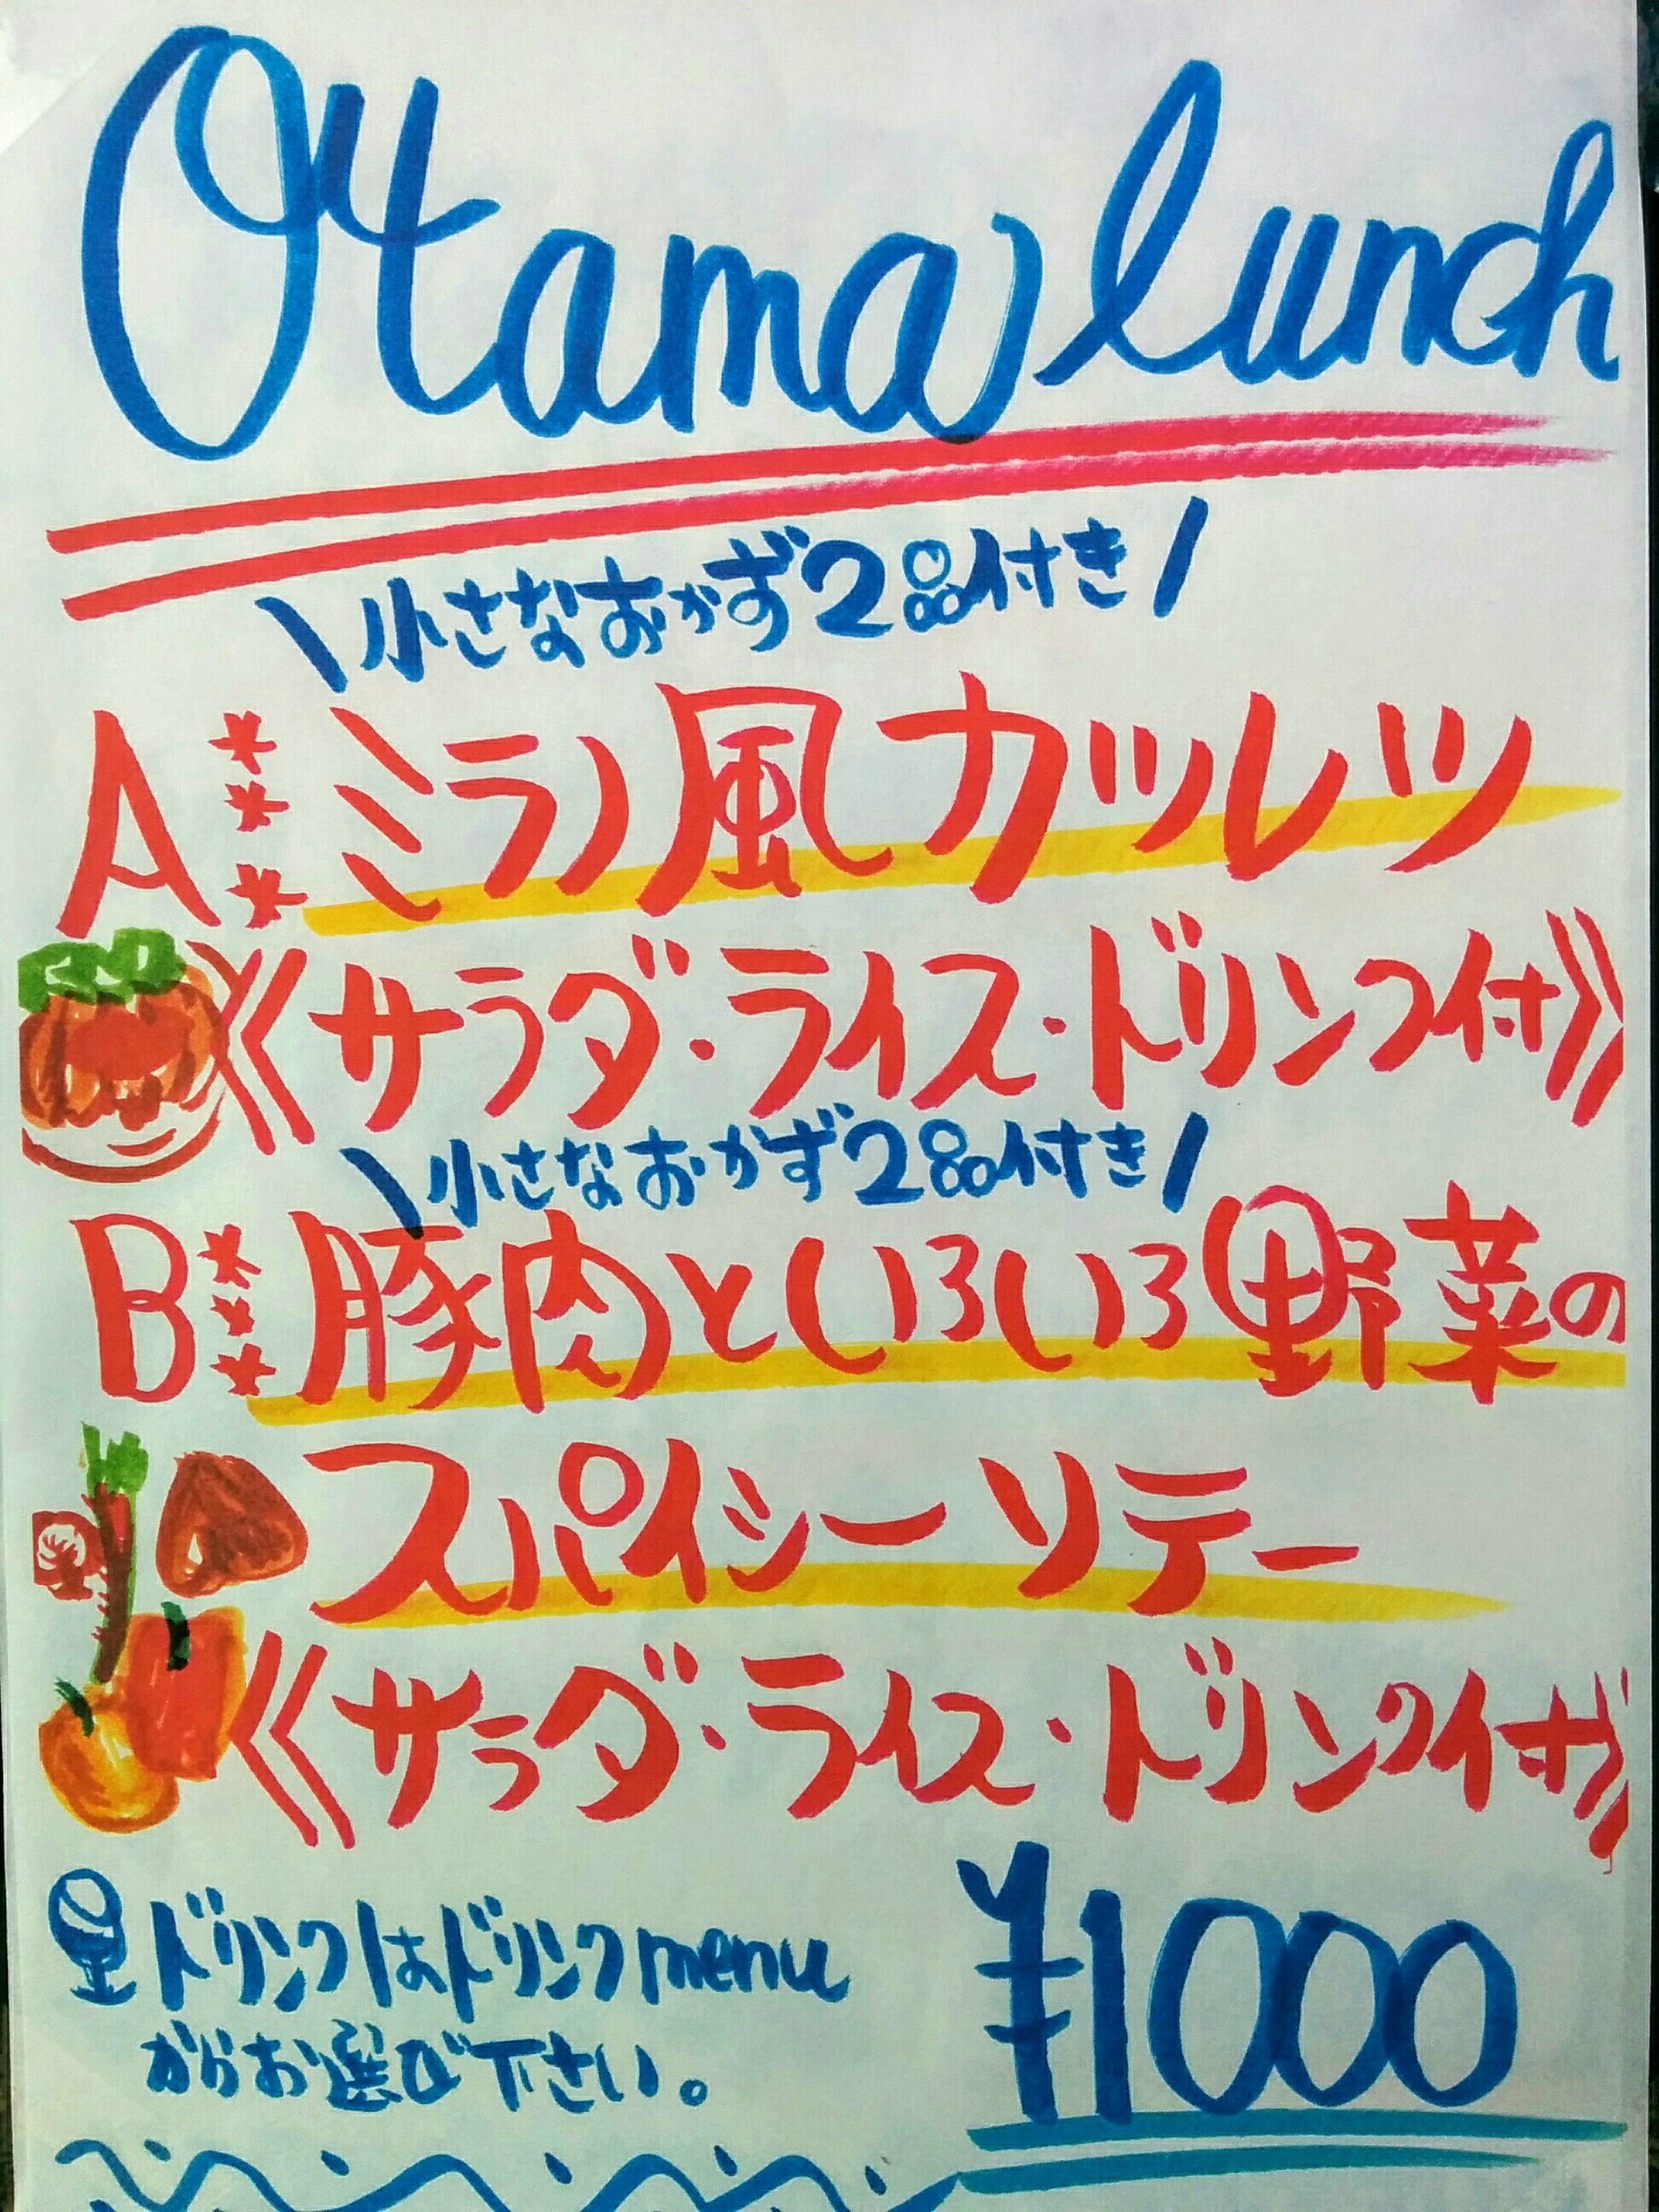 Otama lunch
\小さなおかず2品付き/
A ミラノ風カツレツ
《サラダ・ライス・ドリンク付》
\小さなおかず2品付き/
B 豚肉といろいろ野菜の
スパイシーソテー
《サラダ・ライス・ドリンク付》
ドリンクはドリンクmenu
からお選び下さい。
¥1000